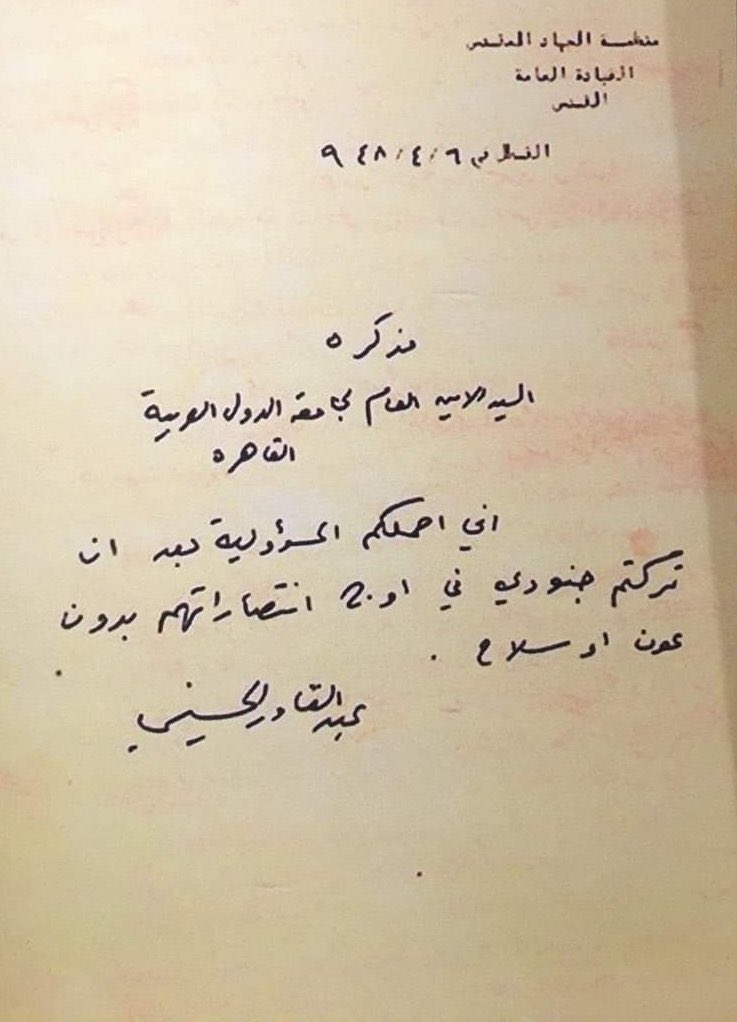 منظمة الجهاد المقدس
القيادة العامة
القدس
القدس في ٦/٤/٩٤٨
مذكره
السيد الامين العام لجامعة الدول العربية
القاهره
اني احملكم المسؤولية بعد ان
تركتم جنودي في اوج انتصاراتهم بدون
عون او سلاح .
عبد القادر الحسيني